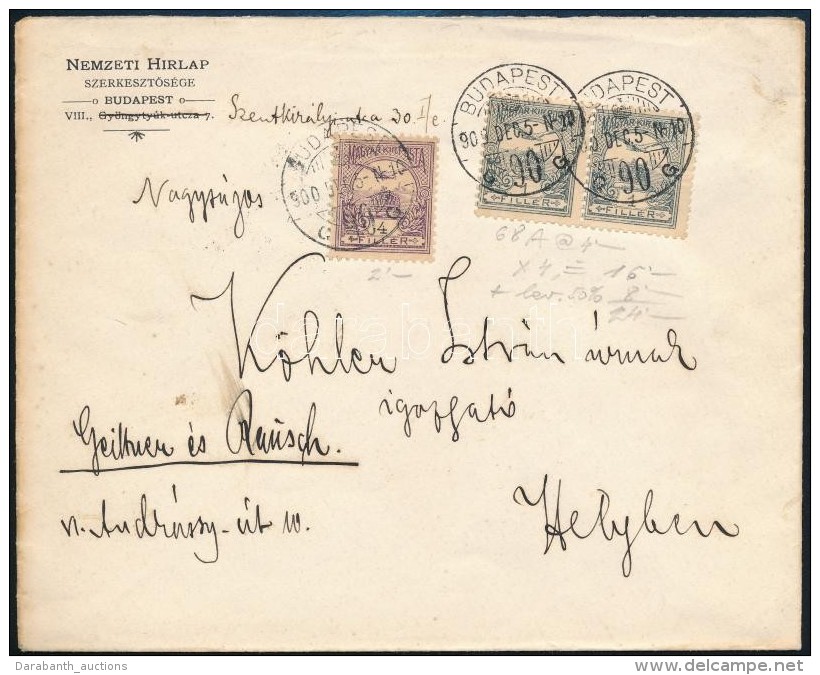 NEMZETI HIRLAP
SZERKESZTŐSÉGE
BUDAPEST
VIII., Gyöngytyúk-utcza 7. Szentkirályi utca 30 I/e.
BUDAPEST
BUDAPEST
BUDAPEST
900 DEC. 5-
G G
MAGYAR KIR. POSTA
FILLÉR
MAGYAR KIR.
90
FILLÉR
MAGYAR KIR.
90
FILLÉR
Nagyságos
2'—
68 A @ 4'—
x 4, = 16'—
+ lev. 50% 8'—
24'—
darabanth
Köhler István úrnak
igazgató
Geittner és Rausch.
VI. Andrássy-út 10.
Helyben
Darabanth_auctions
©delcampe.net